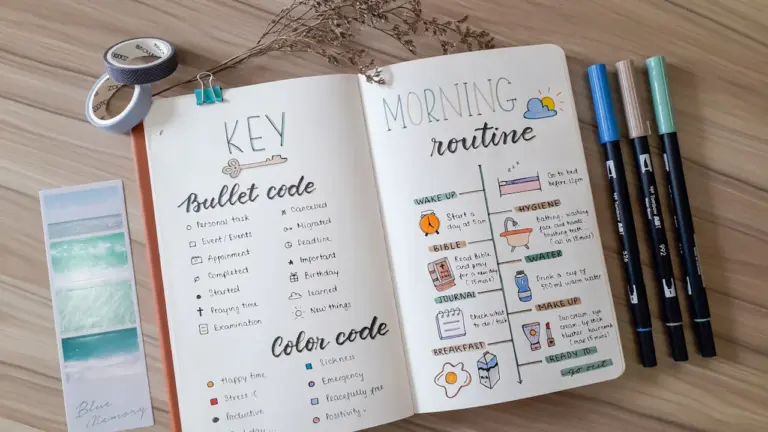 KEY
Bullet code
Personal task
Event/Events
Appoinment
Completed
Started
Praying time
Examination
Cancelled
Migrated
Deadline
Important
Birthday
Learned
New things
Color code
Happy time
Stress :(
Productive
Sickness
Emergency
Peacefully free
Positivity
MORNING
routine
zzz
Go to bed
before 12pm
WAKE UP
Start a
day at 5am
HYGIENE
Bathing, washing
face and hands
brushing teeth
(all in 15 mins)
BIBLE
Read Bible
and pray
for a new day
(15 mins)
WATER
Drink a cup of
500 ml warm water
JOURNAL
Check what
to do / task
MAKE UP
Sun cream, eye
cream, lip stick
blusher, hair comb
(max 15 mins)
BREAKFAST
READY TO
go out
Blue
Memory
Tombow ABT
526
992